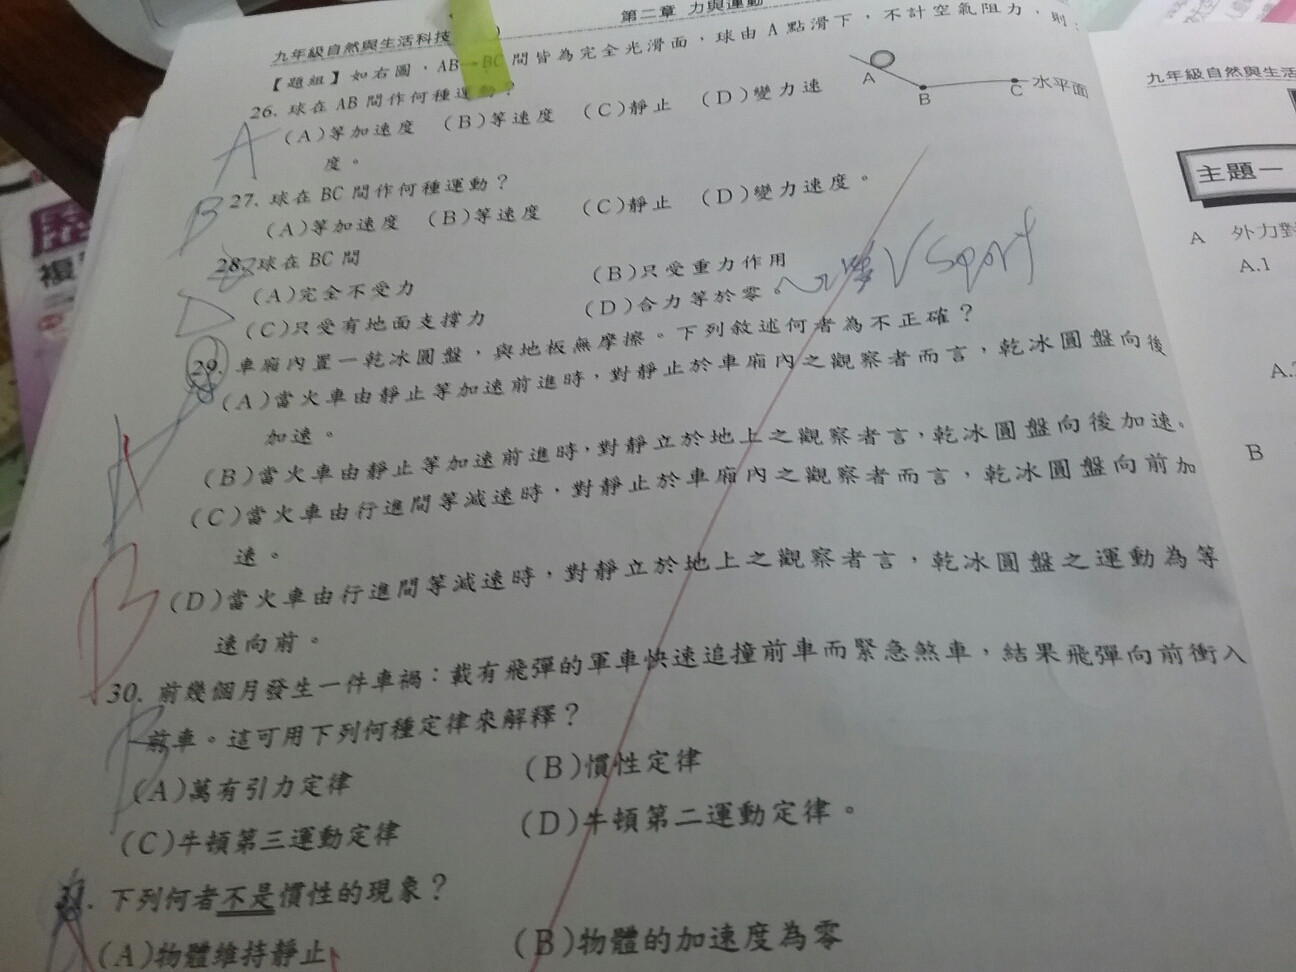 第二章 力與運動
九年級自然與生活科技
【題組】如右圖,AB→BC間皆為完全光滑面,球由A點滑下,不計空氣阻力,則:
A
B
C 水平面
26. 球在AB間作何種運動?
(A)等加速度 (B)等速度 (C)靜止 (D)變力速
度。
A
27. 球在BC間作何種運動?
(A)等加速度 (B)等速度 (C)靜止 (D)變力速度。
B
28. 球在BC間
(A)完全不受力 (B)只受重力作用
(C)只受有地面支撐力 (D)合力等於零。
D
V Sport
29. 車廂內置一乾冰圓盤,與地板無摩擦。下列敘述何者為不正確?
(A)當火車由靜止等加速前進時,對靜止於車廂內之觀察者而言,乾冰圓盤向後
加速。
(B)當火車由靜止等加速前進時,對靜立於地上之觀察者言,乾冰圓盤向後加速。
(C)當火車由行進間等減速時,對靜止於車廂內之觀察者而言,乾冰圓盤向前加
速。
(D)當火車由行進間等減速時,對靜立於地上之觀察者言,乾冰圓盤之運動為等
速向前。
A
B
30. 前幾個月發生一件車禍:載有飛彈的軍車快速追撞前車而緊急煞車,結果飛彈向前衝入
前車。這可用下列何種定律來解釋?
(A)萬有引力定律 (B)慣性定律
(C)牛頓第三運動定律 (D)牛頓第二運動定律。
B
31. 下列何者不是慣性的現象?
(A)物體維持靜止 (B)物體的加速度為零
九年級自然與生活
主題一
A 外力對
A.1
B